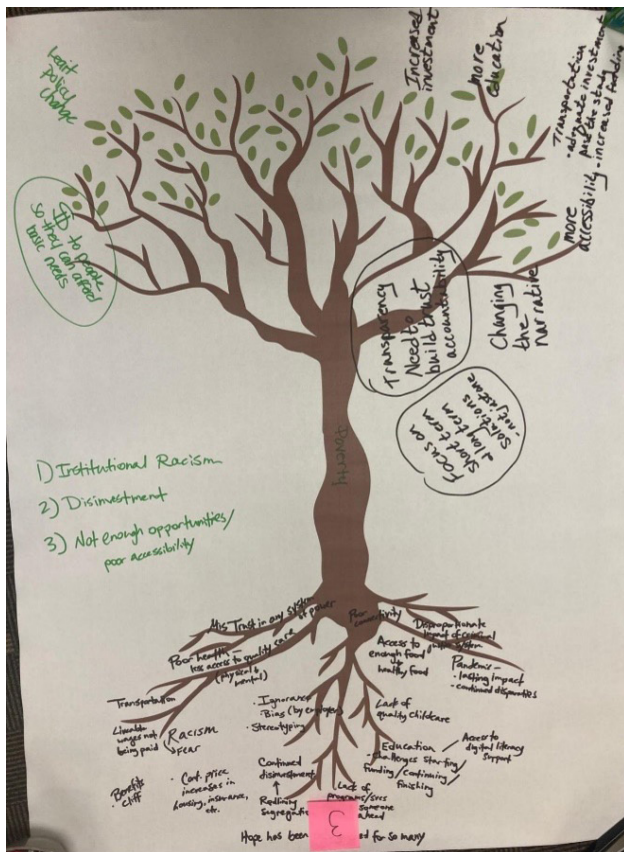 Benefit
policy
change
$ to people
so they can afford
basic needs
Increased
investment
more
education
Transportation
- adequate investment
past the study
- increased funding
more
accessibility
Transparency
Need to
build trust
accountability
Changing
the
narrative
Focus on
short term
& long term
solutions
- not just one
Poverty
1) Institutional Racism
2) Disinvestment
3) Not enough opportunities/
poor accessibility
Mis Trust in any system
of power
Poor
connectivity
Disproportionate
impact of criminal
justice system
Poor health -
less access to quality care
(physical &
mental)
Access to
enough food
healthy food
Pandemic -
- lasting impact
- continued disparities
Transportation
Liveable
wages not
being paid
Racism
Fear
· Ignorance
· Bias (by employers)
· Stereotyping
Lack of
quality childcare
Education
- challenges starting/
funding/continuing/
finishing
Access to
digital literacy
support
Benefits
cliff
· Cont. price
increases in
housing, insurance,
etc.
Continued
disinvestment
Redlining
Lack of
programs/srcs
someone
ahead
3
Hope has been
for so many